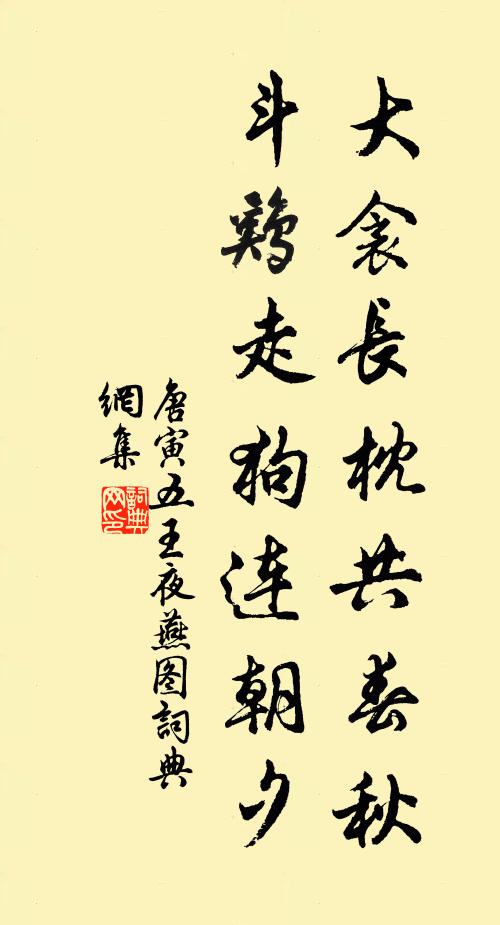 大衾長枕共春秋
斗鷄走狗連朝夕
唐寅五王夜燕图詞典
網集
詞典
网印